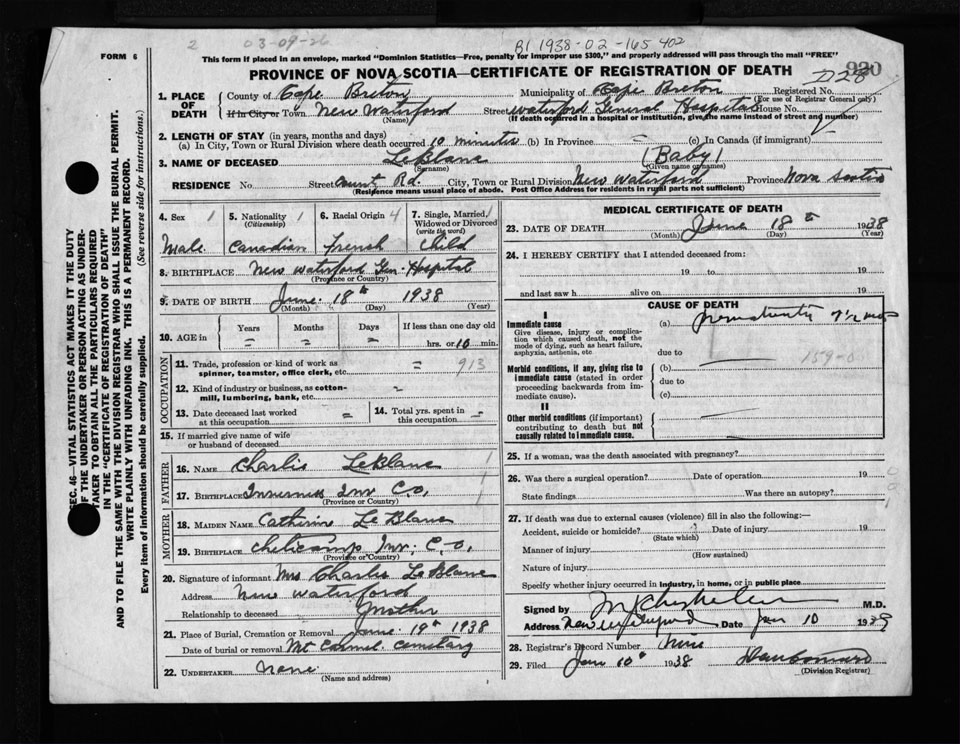 2 03-09-26
B1 1938-02-165402
FORM 6
This form if placed in an envelope, marked "Dominion Statistics—Free, penalty for improper use $300," and properly addressed will pass through the mail "FREE"
920
PROVINCE OF NOVA SCOTIA—CERTIFICATE OF REGISTRATION OF DEATH
D28
1. PLACE OF DEATH
County of Cape Breton Municipality of Cape Breton Registered No.
(For use of Registrar General only)
If in City or Town New Waterford Street Waterford General Hospital House No.
(Name) (If death occurred in a hospital or institution, give the name instead of street and number)
2. LENGTH OF STAY (in years, months and days)
(a) In City, Town or Rural Division where death occurred 10 minutes (b) In Province = (c) In Canada (if immigrant)
3. NAME OF DECEASED LeBlanc (Baby)
(Surname) (Given name or names)
RESIDENCE No. Street Court Rd. City, Town or Rural Division New Waterford Province Nova Scotia
(Residence means usual place of abode. Post Office Address for residents in rural parts not sufficient)
SEC. 46—VITAL STATISTICS ACT MAKES IT THE DUTY
OF THE UNDERTAKER OR PERSON ACTING AS UNDER-
TAKER TO OBTAIN ALL THE PARTICULARS REQUIRED
IN THE "CERTIFICATE OF REGISTRATION OF DEATH"
AND TO FILE THE SAME WITH THE DIVISION REGISTRAR WHO SHALL ISSUE THE BURIAL PERMIT.
WRITE PLAINLY WITH UNFADING INK. THIS IS A PERMANENT RECORD.
Every item of information should be carefully supplied. (See reverse side for instructions.)
4. Sex 1 5. Nationality 1 6. Racial Origin 4 7. Single, Married,
(Citizenship) Widowed or Divorced
(write the word)
Male Canadian French Child
8. BIRTHPLACE New Waterford Gen. Hospital
(Province or Country)
9. DATE OF BIRTH June 18th 1938
(Month) (Day) (Year)
10. AGE in Years Months Days If less than one day old
= = = hrs. or 10 min.
OCCUPATION
11. Trade, profession or kind of work as
spinner, teamster, office clerk, etc. = 913
12. Kind of industry or business, as cotton-
mill, lumbering, bank, etc. =
13. Date deceased last worked
at this occupation =
14. Total yrs. spent in
this occupation =
15. If married give name of wife
or husband of deceased
FATHER
16. NAME Charlie LeBlanc 1
17. BIRTHPLACE Inverness Inv Co, 1
(Province or Country)
MOTHER
18. MAIDEN NAME Catherine LeBlanc
19. BIRTHPLACE Cheticamp Inv; C,O,
(Province or Country)
20. Signature of informant Mrs Charlie LeBlanc
Address New Waterford
Relationship to deceased Mother
21. Place of Burial, Cremation or Removal June 19th 1938
Date of burial or removal Mt Carmel cemetary
22. UNDERTAKER none
(Name and address)
MEDICAL CERTIFICATE OF DEATH
23. DATE OF DEATH June 18th 1938
(Month) (Day) (Year)
24. I HEREBY CERTIFY that I attended deceased from:
19 to 19
and last saw h alive on 19
CAUSE OF DEATH
I
Immediate cause (a) Prematurity 7½ mos
Give disease, injury or complica-
tion which caused death, not the
mode of dying, such as heart failure,
asphyxia, asthenia, etc
due to
159-0
Morbid conditions, if any, giving rise to (b)
immediate cause (stated in order due to
proceeding backwards from im-
mediate cause). (c)
II
Other morbid conditions (if important)
contributing to death but not
causally related to immediate cause.
25. If a woman, was the death associated with pregnancy?
26. Was there a surgical operation? Date of operation 19
State findings Was there an autopsy?
27. If death was due to external causes (violence) fill in also the following:—
Accident, suicide or homicide? Date of injury 19
(State which)
Manner of injury
(How sustained)
Nature of injury
Specify whether injury occurred in industry, in home, or in public place
Signed by M.D.
Address New Waterford Date Jan 10 1939
28. Registrar's Record Number
29. Filed Jan 10th 1938
(Division Registrar)